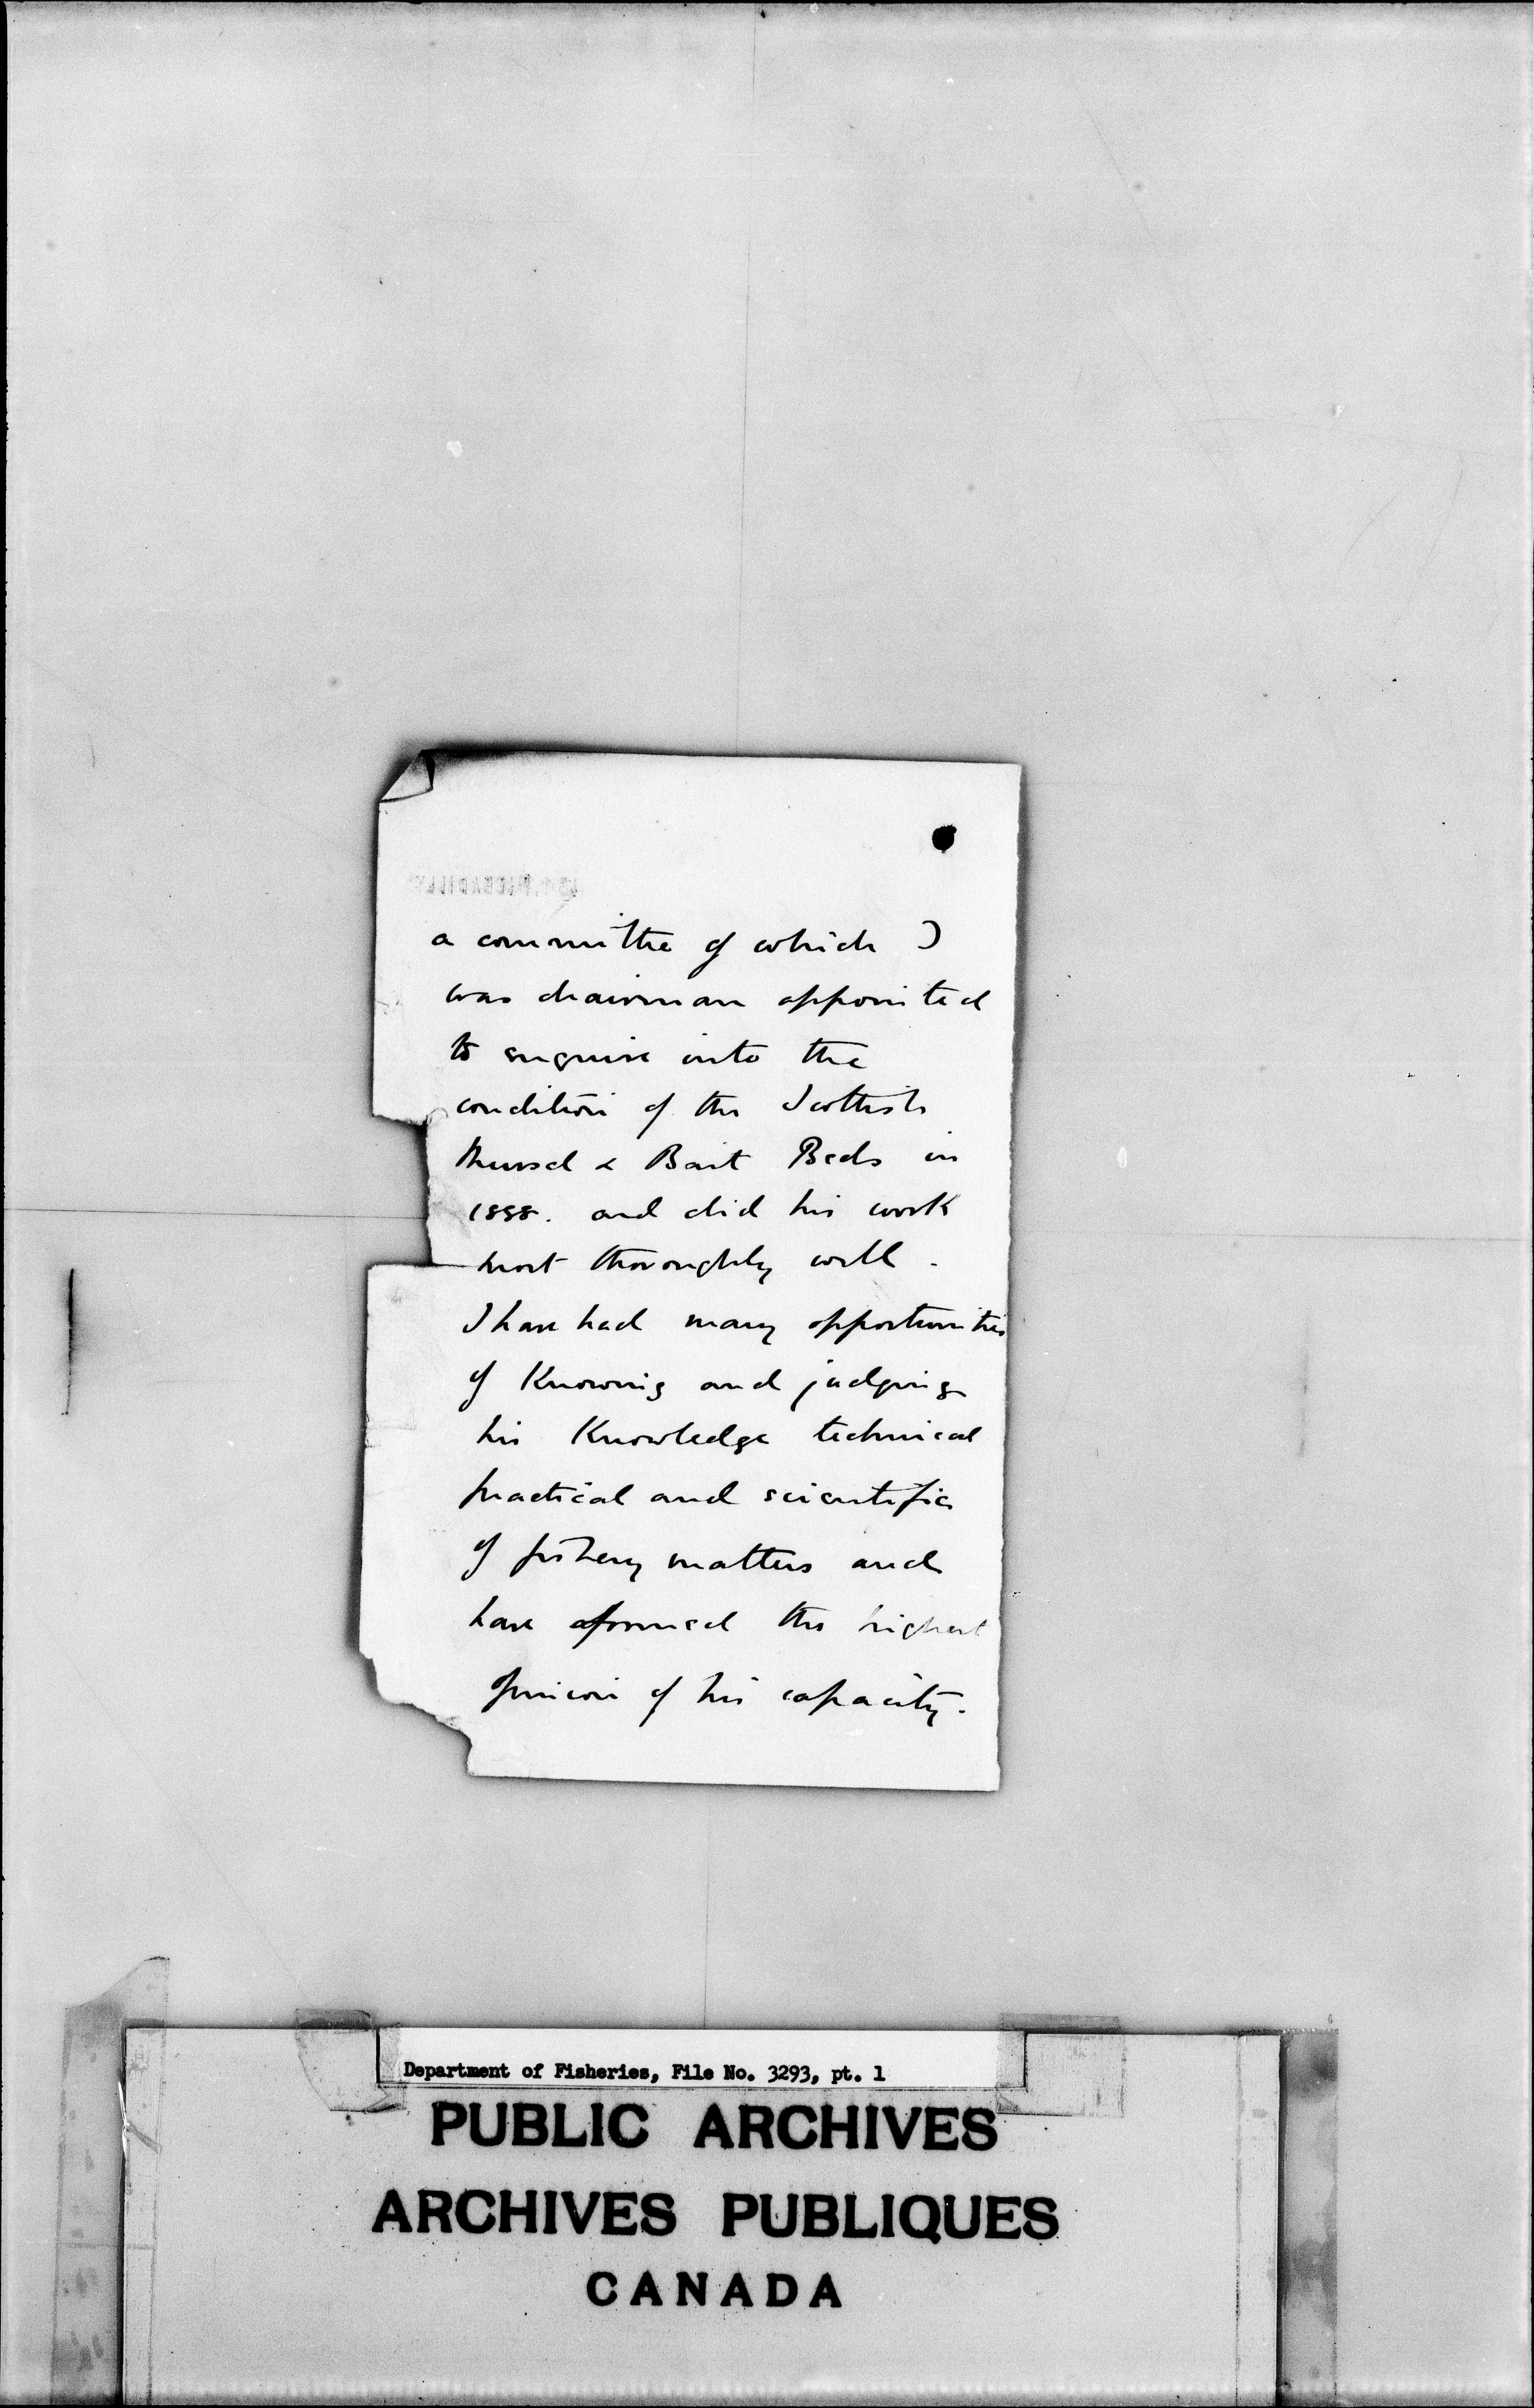 a committee of which I
was chairman appointed
to enquire into the
condition of the Scottish
Mussel & Bait Beds in
1888. and did his work
most thoroughly well.
I have had many opportunities
of Knowing and judging
his Knowledge technical
practical and scientific
of fishery matters and
have formed the highest
opinion of his capacity.
Department of Fisheries, File No. 3293, pt. 1
PUBLIC ARCHIVES
ARCHIVES PUBLIQUES
CANADA